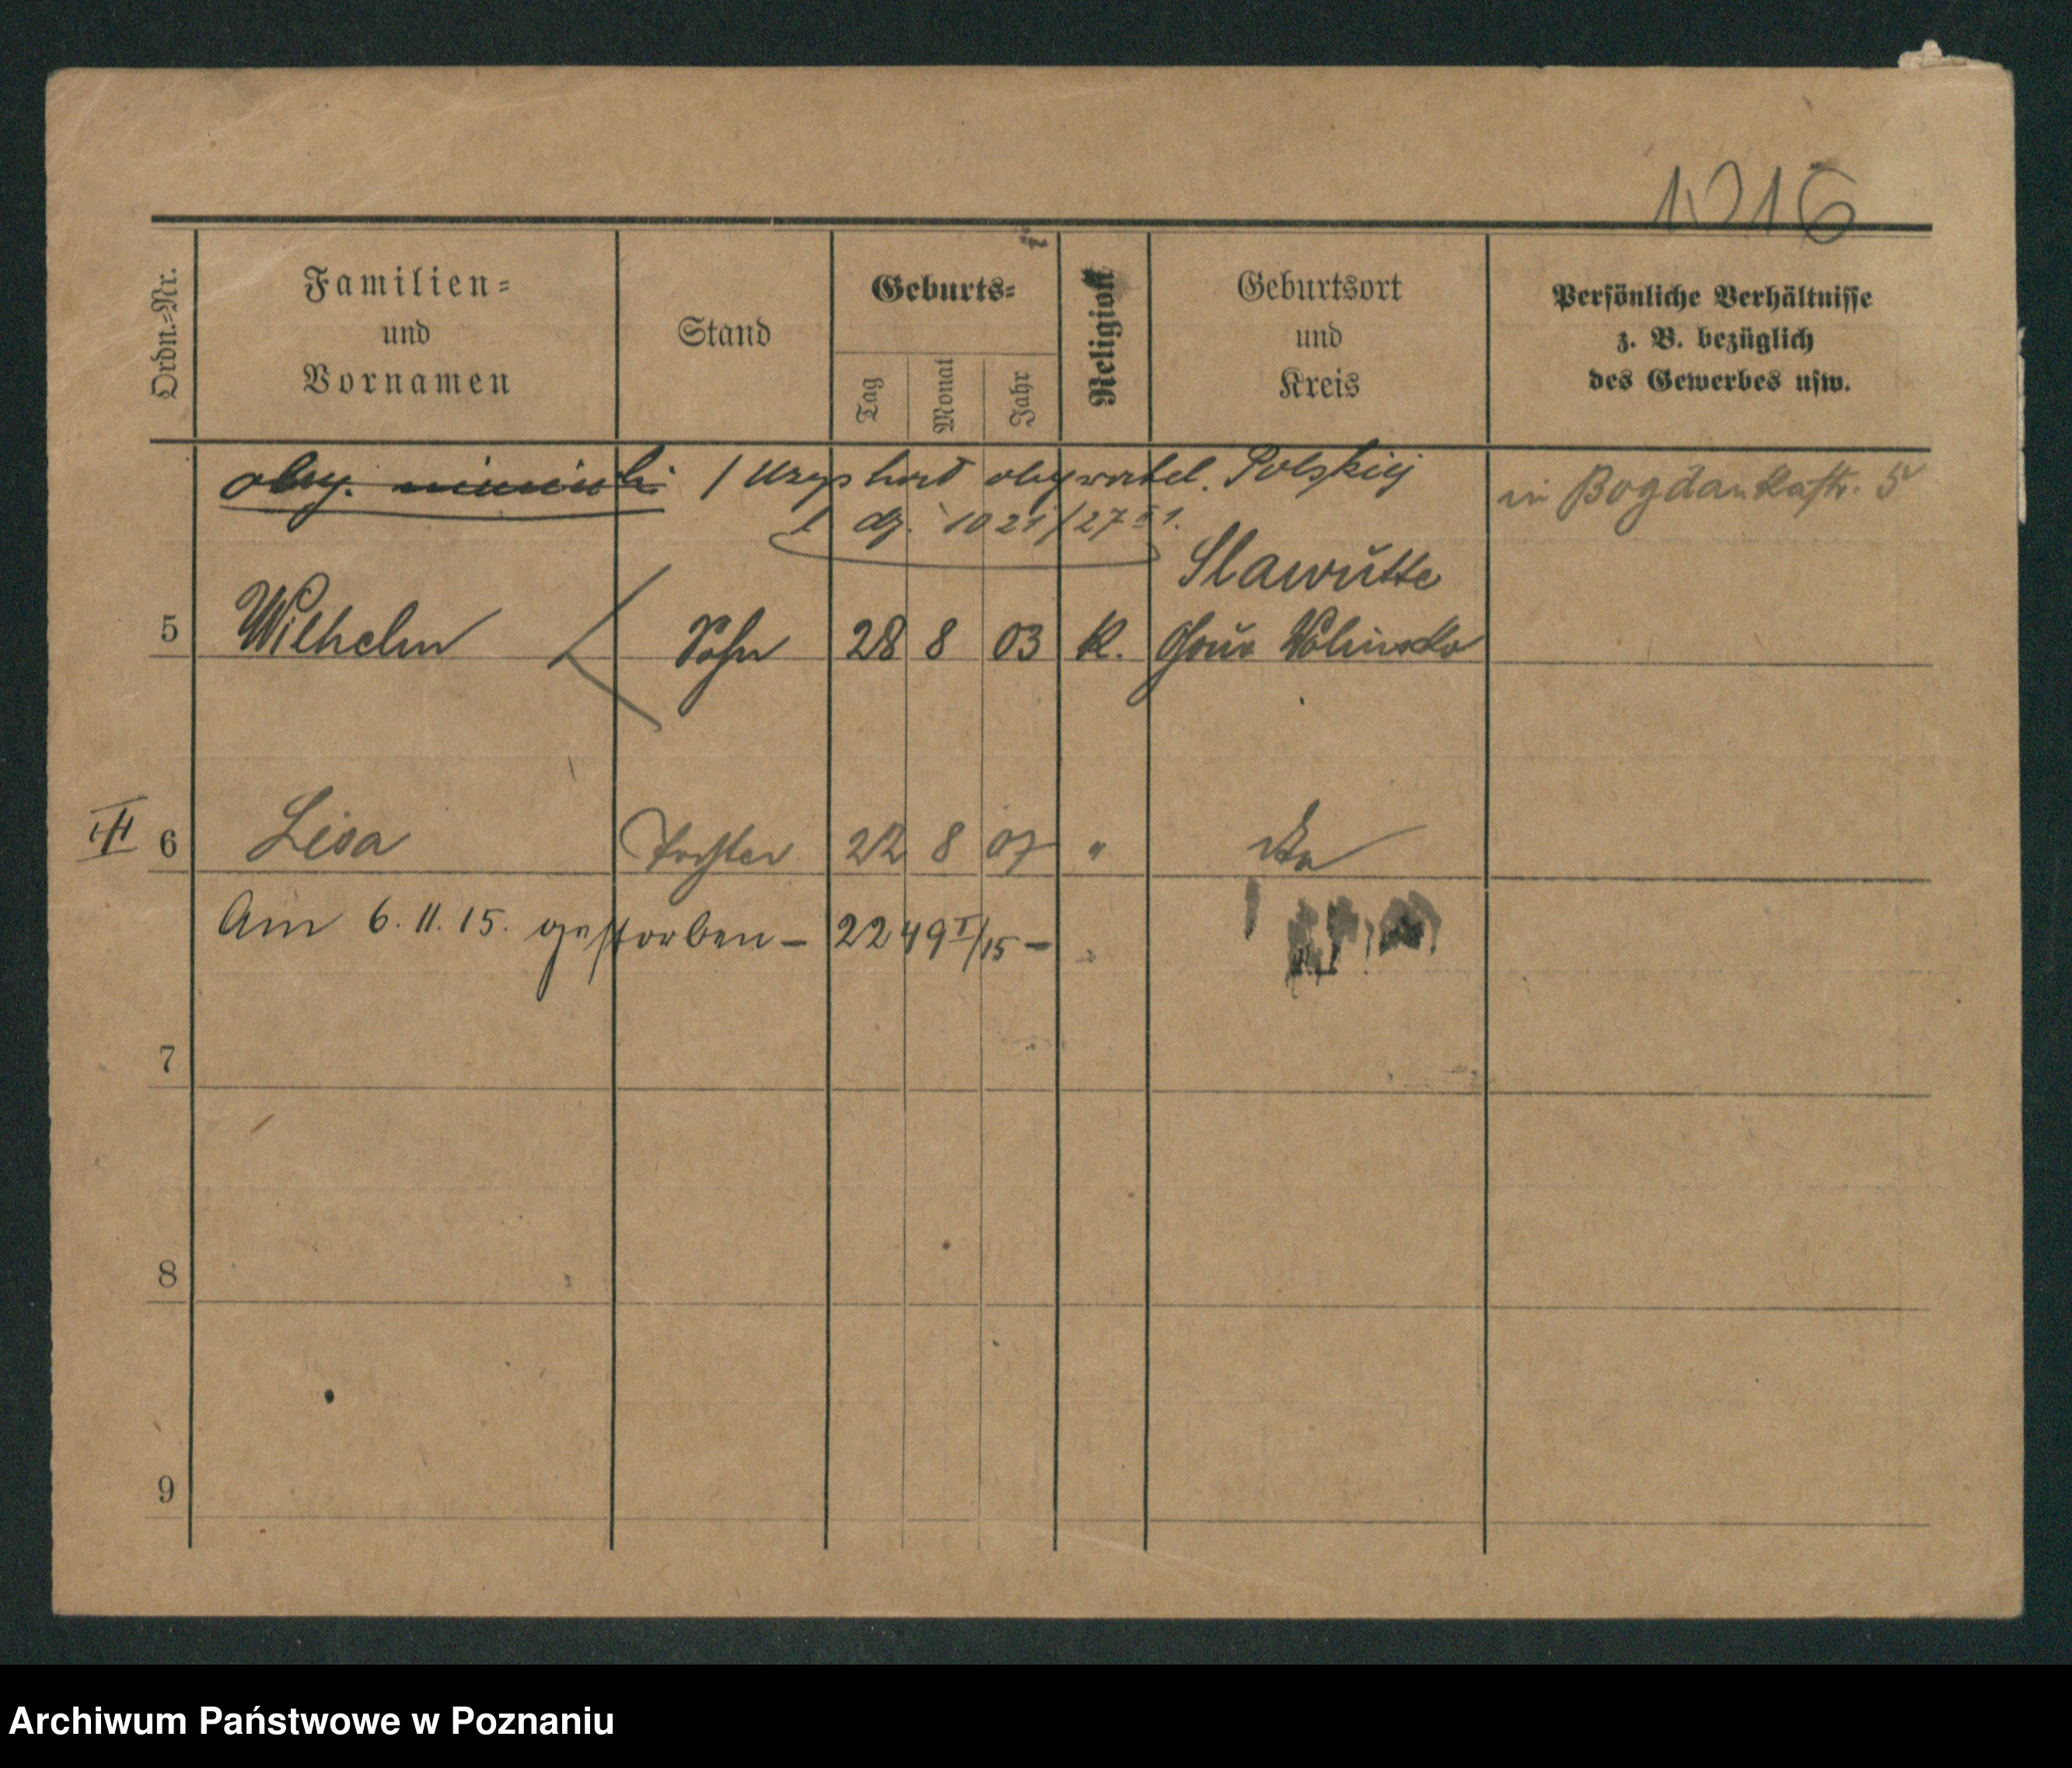 1016
Ordn.=Nr.
Familien=
und
Vornamen
Stand
Geburts=
Tag
Monat
Jahr
Religion
Geburtsort
und
Kreis
Persönliche Verhältnisse
z. B. bezüglich
des Gewerbes usw.
obyw. niemiecki / Uzyskał obywatel. Polskiej
in Bogdankastr. 5
l dz. 1021/27
Slawutte
5 Wilhelm Sohn 28 8 03 K. Gouv Wolinsko
III 6 Lisa Tochter 22 8 07 "
Am 6.11.15. gestorben - 2249 I/15 -
7
8
9
Archiwum Państwowe w Poznaniu